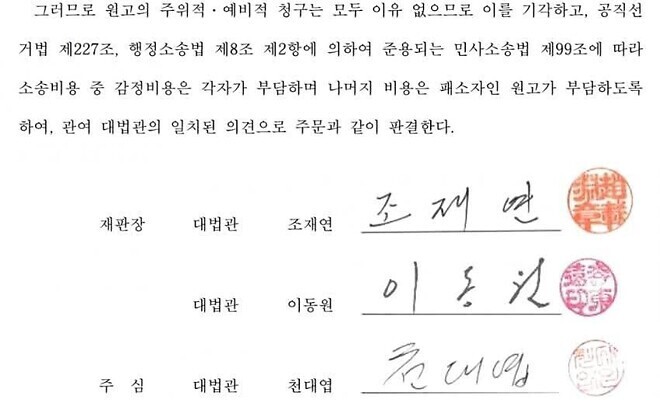 그러므로 원고의 주위적·예비적 청구는 모두 이유 없으므로 이를 기각하고, 공직선
거법 제227조, 행정소송법 제8조 제2항에 의하여 준용되는 민사소송법 제99조에 따라
소송비용 중 감정비용은 각자가 부담하며 나머지 비용은 패소자인 원고가 부담하도록
하여, 관여 대법관의 일치된 의견으로 주문과 같이 판결한다.
재판장 대법관 조재연 조재연
대법관 이동원 이동원
주 심 대법관 천대엽 천대엽